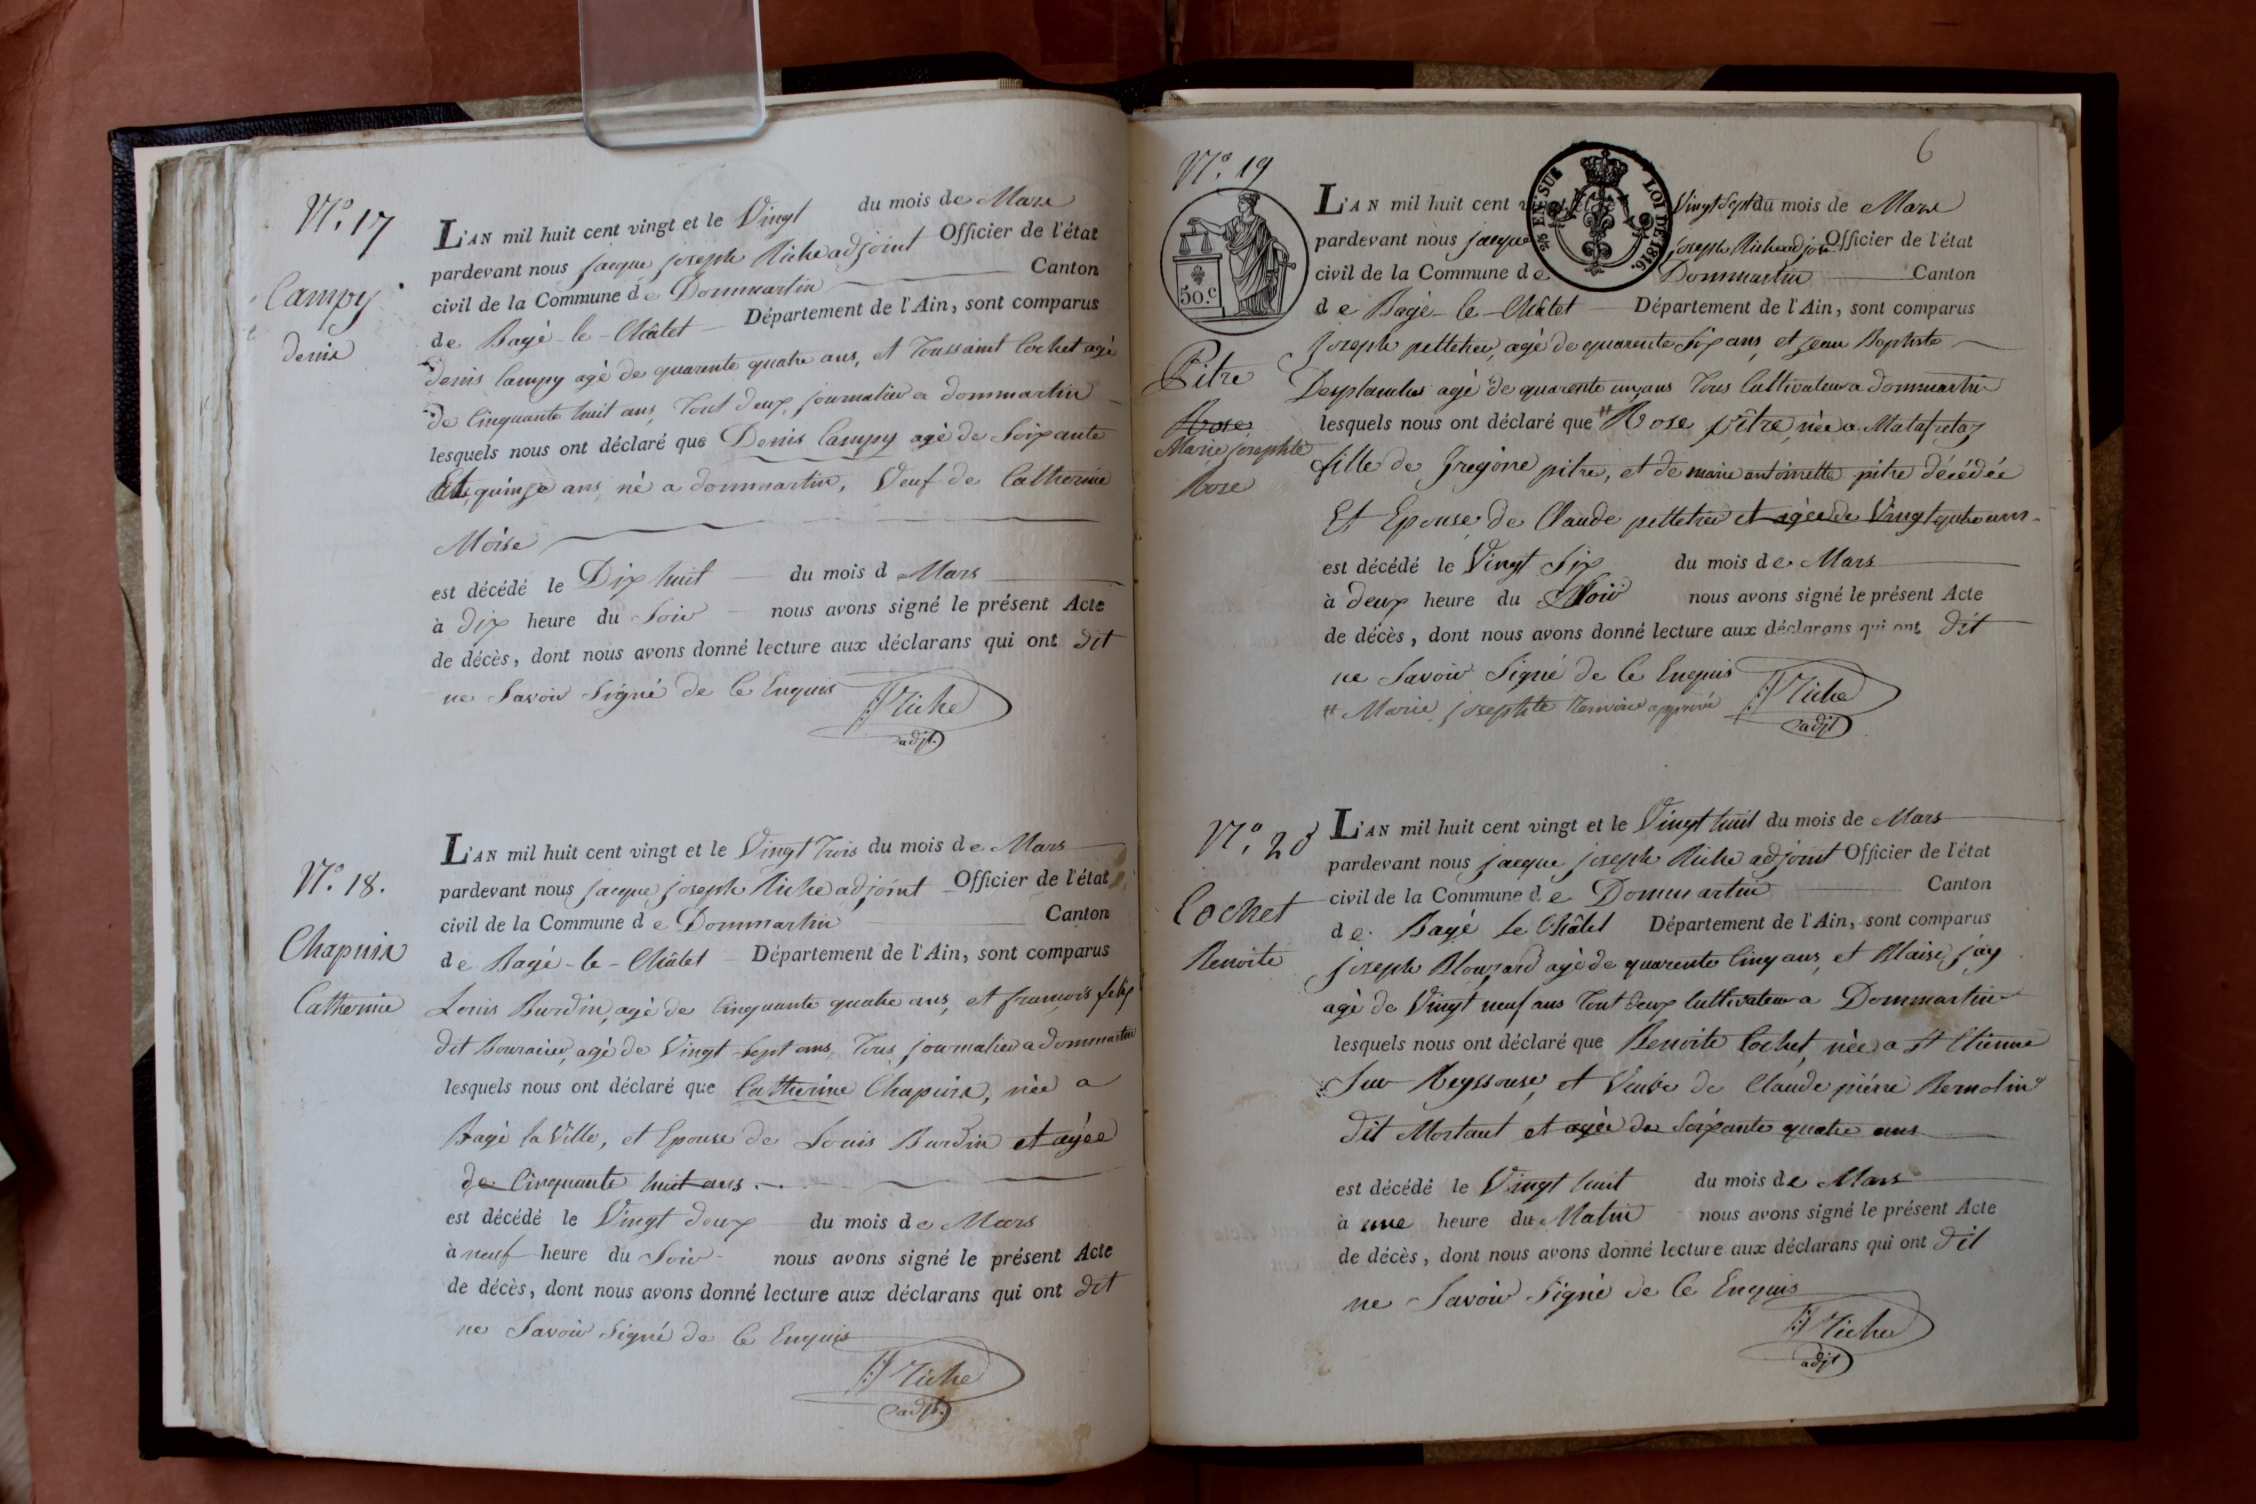 N.° 17
Campy
denis
L'AN mil huit cent vingt et le Vingt du mois de Mars
pardevant nous jacque joseph Riche adjoint Officier de l'état
civil de la Commune de Dommartin Canton
de Bagé-le-Châtet Département de l'Ain, sont comparus
denis Campy agé de quarente quatre ans, et Toussaint Cochet agé
de Cinquante huit ans, Tout deux journalier a dommartin
lesquels nous ont déclaré que Denis Campy agé de Soixante
quinze ans, né a dommartin, Veuf de Catherine
Moise
est décédé le Dix huit du mois de Mars
à dix heure du Soir nous avons signé le présent Acte
de décès, dont nous avons donné lecture aux déclarans qui ont dit
ne Savoir Signé de Ce Enquis
Riche
adjt.
N.° 18.
Chapuis
Catherine
L'AN mil huit cent vingt et le Vingt Trois du mois de Mars
pardevant nous jacque joseph Riche adjoint Officier de l'état
civil de la Commune de Dommartin Canton
de Bagé-le-Châtet Département de l'Ain, sont comparus
Louis Burdin, agé de Cinquante quatre ans, et francois felix
dit agé de Vingt Sept ans, Tous journalier a dommartin
lesquels nous ont déclaré que Catherine Chapuis, née a
Bagé la Ville, et Epouse de Louis Burdin et agée
de Cinquante huit ans
est décédé le Vingt deux du mois de Mars
à neuf heure du Soir nous avons signé le présent Acte
de décès, dont nous avons donné lecture aux déclarans qui ont dit
ne Savoir Signé de Ce Enquis
Riche
adjt.
6
N.° 19
50.c
EN SUS
LOI DE 1816.
Pitre
Rose
Marie josephte
Rose
L'AN mil huit cent Vingt Sept du mois de Mars
pardevant nous jacque joseph Riche adjoint Officier de l'état
civil de la Commune de Dommartin Canton
de Bagé-le-Châtet Département de l'Ain, sont comparus
joseph pelletier, agé de quarente Six ans, et jean Baptiste
Desplanches agé de quarente un ans Tous Cultivateur a dommartin
lesquels nous ont déclaré que # Rose pitre, née a Malafretaz
fille de Gregoire pitre, et de marie antoinette pitre décédée
Et Epouse de Claude pelletier et agée de Vingt quatre ans
est décédé le Vingt Six du mois de Mars
à deux heure du Soir nous avons signé le présent Acte
de décès, dont nous avons donné lecture aux déclarans qui ont dit
ne Savoir Signé de Ce Enquis
# Marie josephte Renvoie approuvé
Riche
adjt
N.° 20
Cochet
Benoite
L'AN mil huit cent vingt et le Vingt huit du mois de Mars
pardevant nous jacque joseph Riche adjoint Officier de l'état
civil de la Commune de Dommartin Canton
de Bagé le Châtel Département de l'Ain, sont comparus
joseph Blouzard agé de quarente Cinq ans, et Blaise jay
agé de Vingt neuf ans Tout deux Cultivateur a Dommartin
lesquels nous ont déclaré que Benoite Cochet, née a St Etienne
Sur Reyssouse, et Veuve de Claude piérre Bernolin
dit Mortaut et agée de Soixante quatre ans
est décédé le Vingt huit du mois de Mars
à une heure du Matin nous avons signé le présent Acte
de décès, dont nous avons donné lecture aux déclarans qui ont dit
ne Savoir Signé de Ce Enquis
Riche
adjt